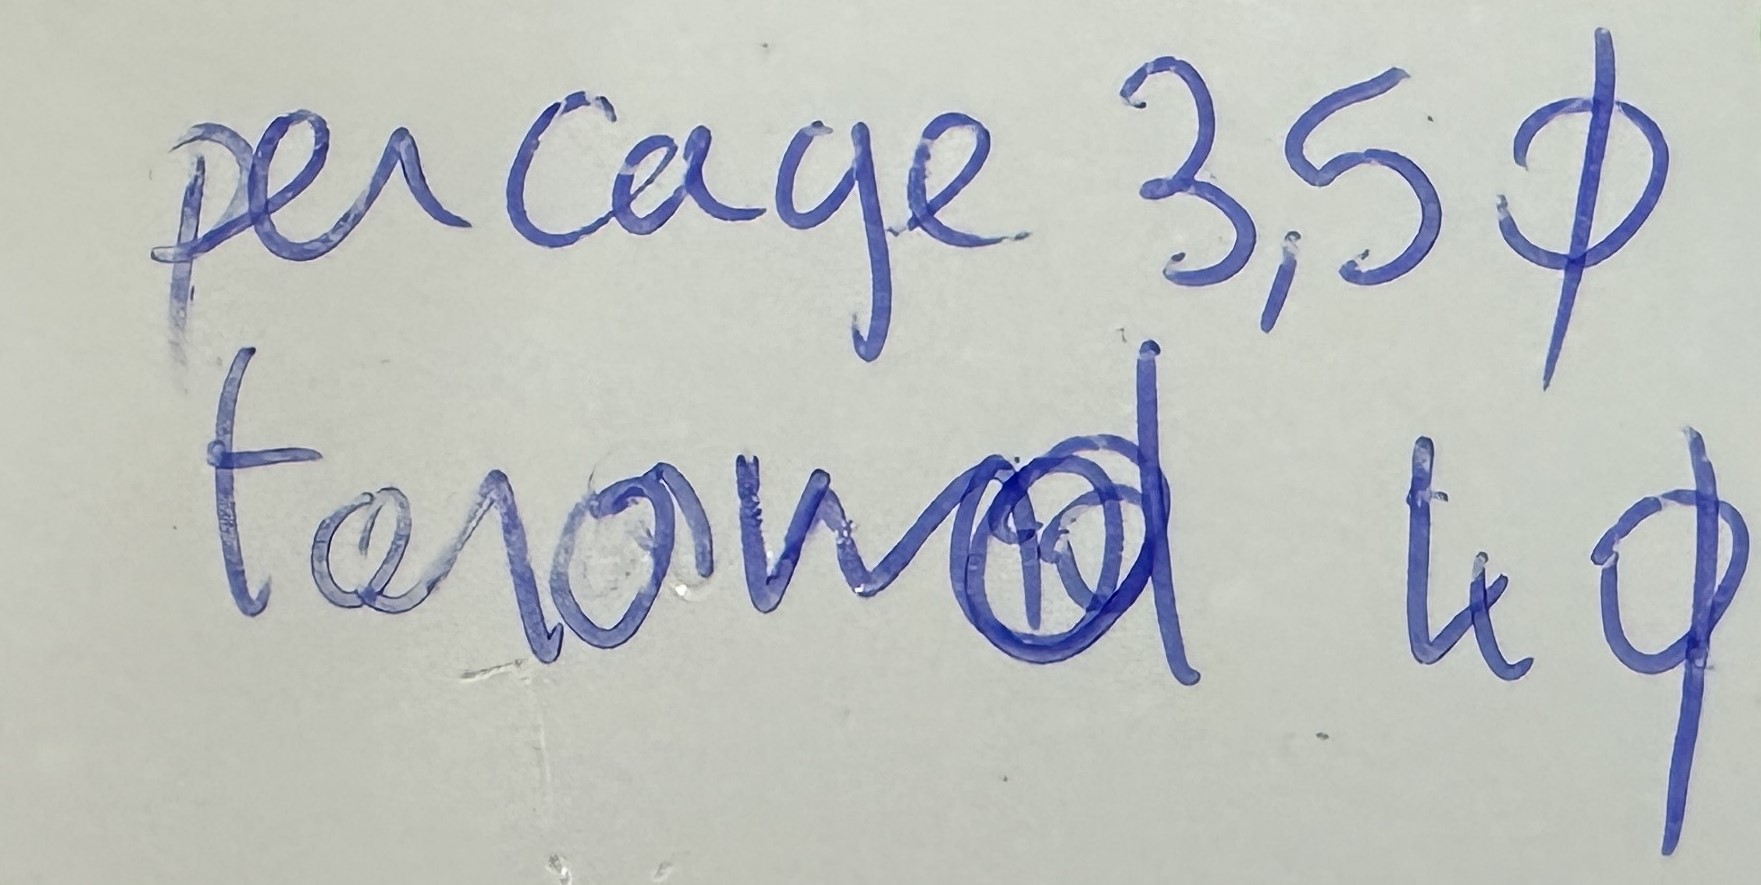 per cage 3,5 ϕ
tarawod 4 ϕ